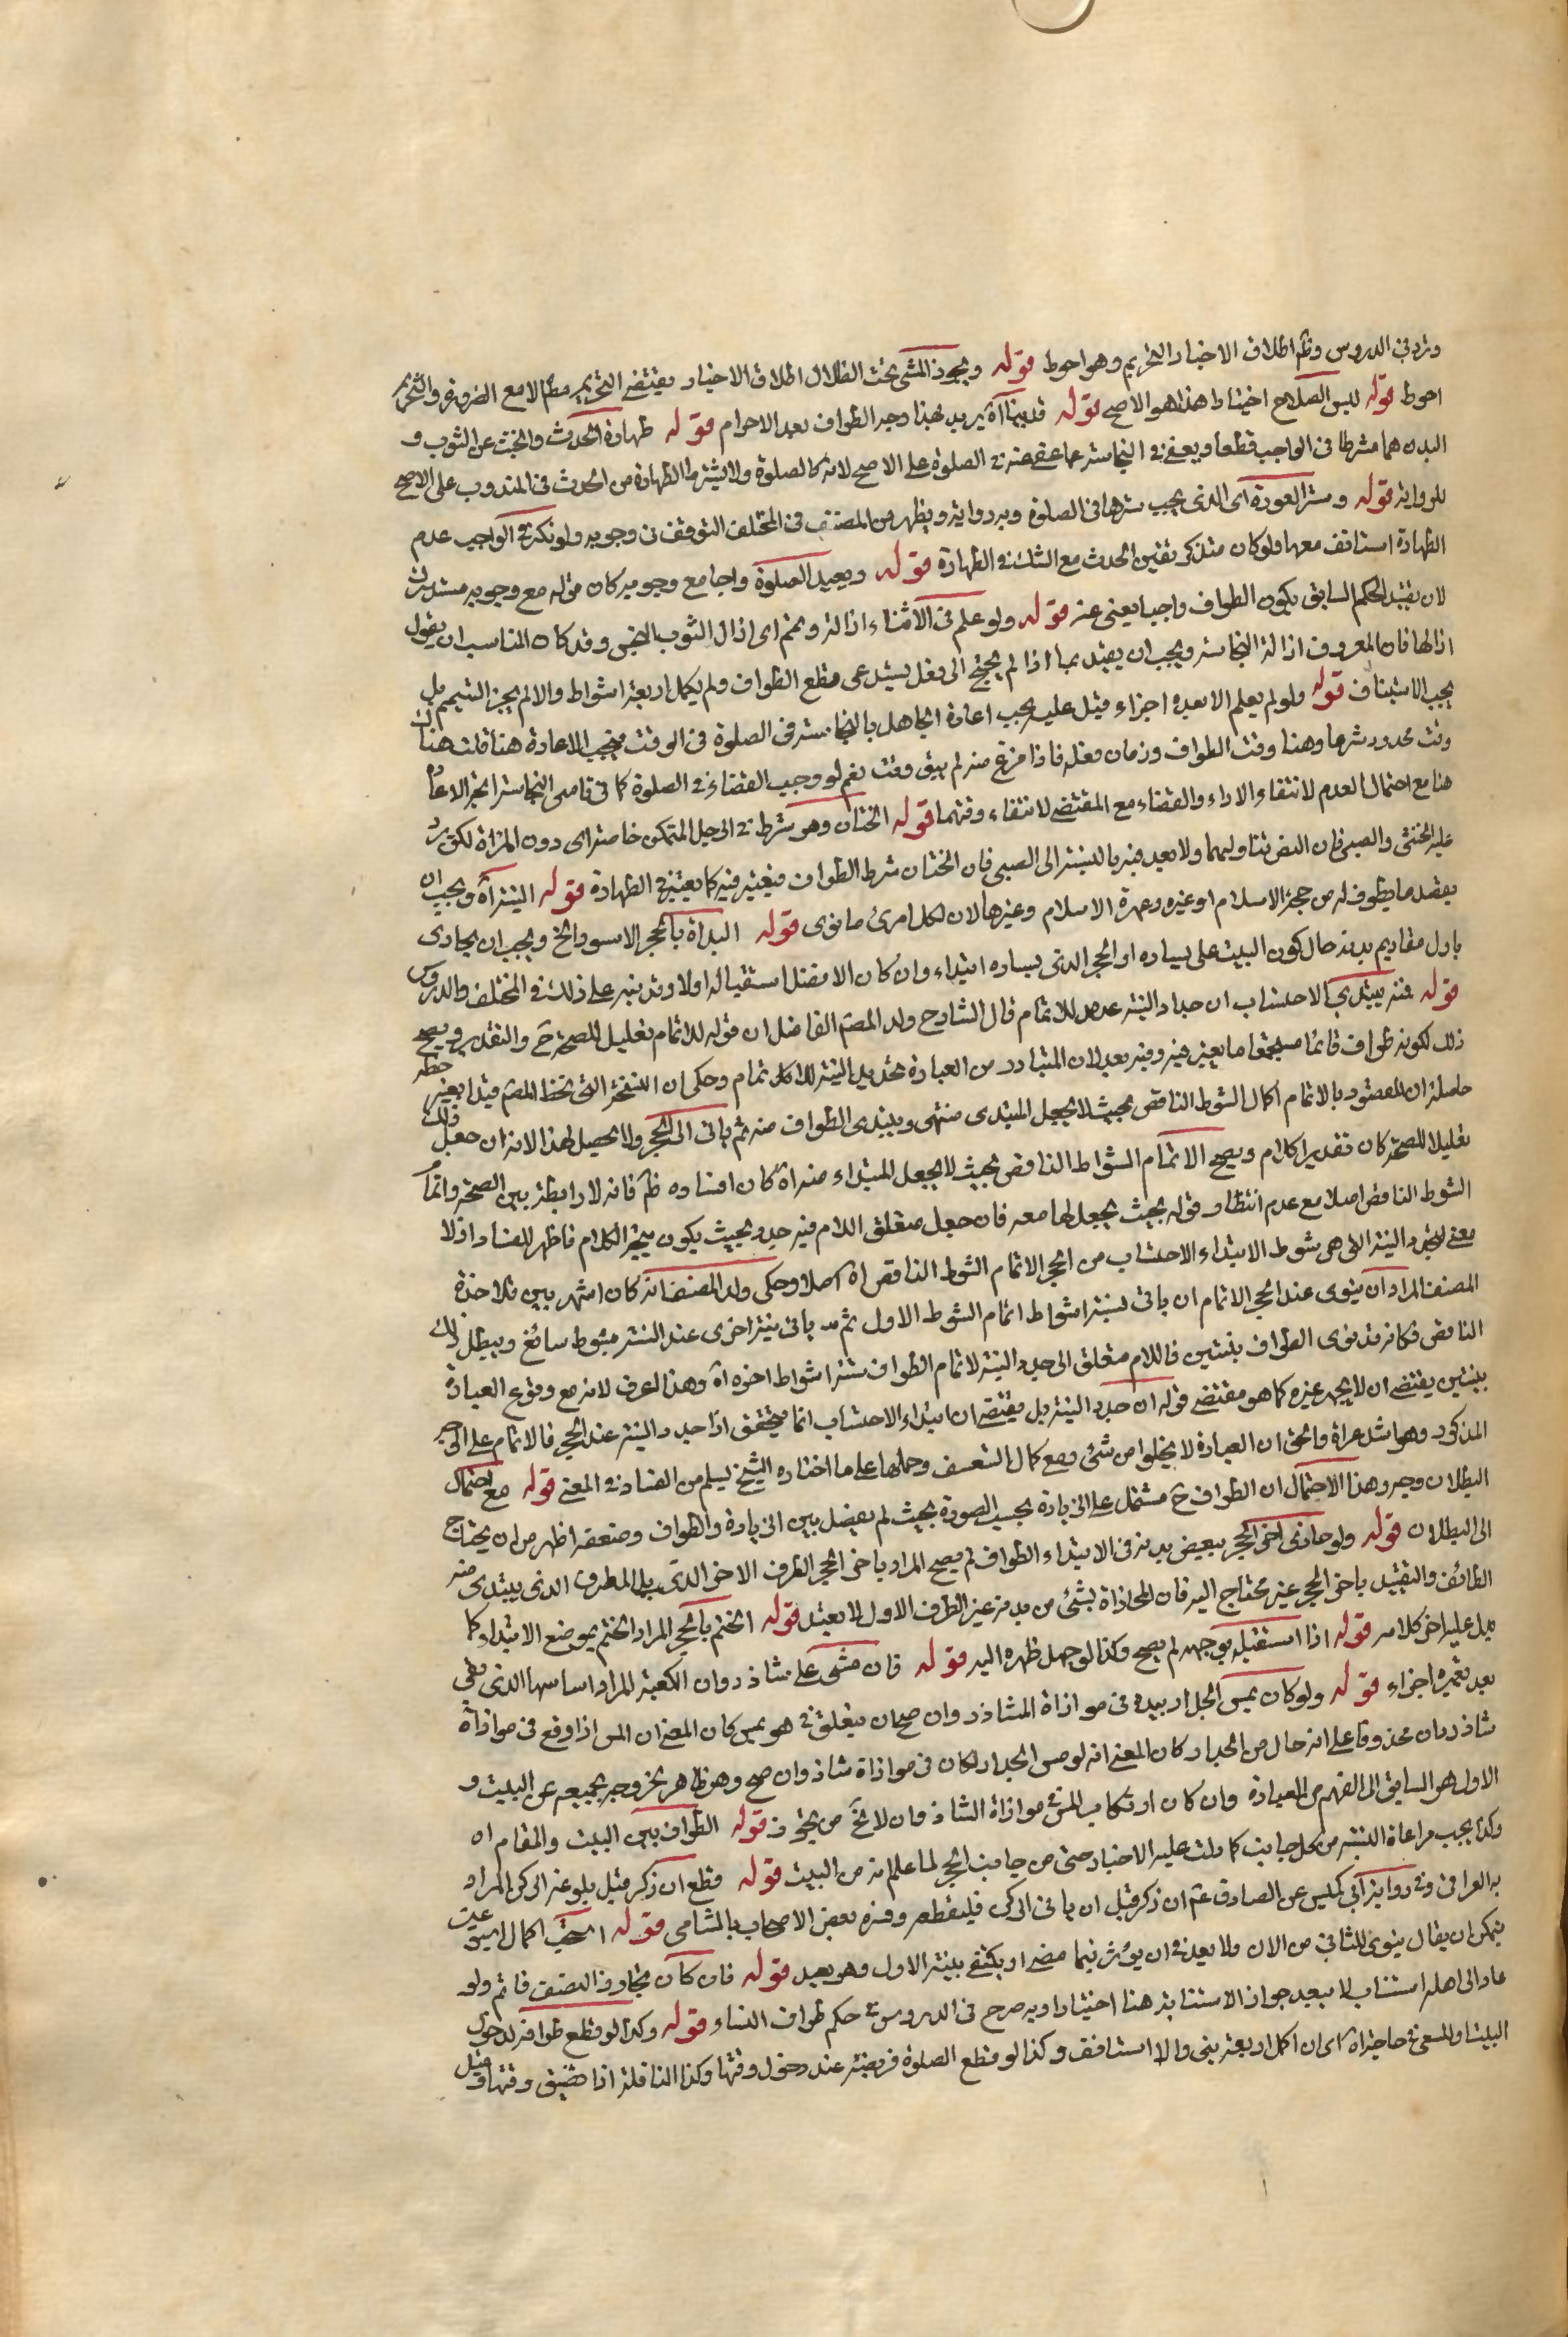 وتردد في الدروس وظم اطلاق الاخبار التحريم وهو احوط قوله ويجوز المشى تحت الظلال اطلاق الاخبار يقتضى التحريم مطم الا مع الضرورة والتحريم
احوط قوله لبس السلاح اختيارا هذا هو الاصح قوله قد بينا آه يريد بهذا وجه الطواف بعد الاحرام قوله طهارة الحدث والخبث عن الثوب و
البدن هما شرطا في الواجب قطعا ويعفى في النجاسة عما عفى عنه في الصلوة على الاصح لانه كالصلوة ولا يشترط الطهارة من الحدث في المندوب على الاصح
للرواية قوله وستر العورة اى الذى يجب سترها في الصلوة وبه رواية ويظهر من المصنف في المختلف التوقف في وجوبه ولو ذكر في الواجب عدم
الطهارة استانف معها ولو كان متذكر تيقن الحدث مع الشك في الطهارة قوله ويعيد الصلوة واجبا مع وجوبه كان قوله مع وجوبه مستدرك
لان تقييد الحكم السابق بكون الطواف واجبا يغنى عنه قوله ولو علم في الاثناء ازاله وتمم اى ازال الثوب النجس وقد كان المناسب ان يقول
ازالها فان المعروف ازالة النجاسة ويجب ان يقيد بما اذا لم يحتج الى فعل يستدعى قطع الطواف ولم يكمل اربعة اشواط والا لم يجز التتميم بل
يجب الاستيناف قوله ولو لم يعلم الا بعده اجزاء قيل عليه يجب اعادة الجاهل بالنجاسة في الصلوة في الوقت فيجب الاعادة هنا قلت هناك
وقت محدود شرعا وهنا وقت الطواف وزمان فعله فاذا فرغ منه لم يبق وقت نعم لو وجب القضاء في الصلوة كما في ناسى النجاسة اتجه الاعادة
هنا مع احتمال العدم لانتفاء الاداء والقضاء مع المقتضى لانتفاء وقتهما قوله الختان وهو شرط في الرجل المتمكن خاصة اى دون المرأة لكن يرد
عليه الخنثى والصبى فان النص تناولهما ولا بعد فيه بالنسبة الى الصبى فان الختان شرط الطواف فيعتبر فيه كما يعتبر في الطهارة قوله النية آه ويجب ان
يقصد ما يطوف له من حجة الاسلام او غيره وعمرة الاسلام وغيرها لان لكل امرئ ما نوى قوله البدأة بالحجر الاسود الخ ويجب ان يحاذى
باول مقاديم بدنه حال كون البيت على يساره او الحجر الذى يساره ابتداء وان كان الافضل استقباله اولا وقد نبه على ذلك في المختلف والدروس
قوله فمنه يبتدئ الاحتساب ان جدد النية عنده للاتمام قال الشارح ولد المصم الفاضل ان قوله للاتمام تعليل للصحة ح والتقدير ويصح
ذلك لكونه طواف قائما مستجمعا ما يعتبر فيه وفيه بعد لان المتبادر من العبارة تجديد النية للاتمام وحكى ان النسخة التى بخط المصم قيد ابغير خطه
حاصله ان المقصود بالاتمام اكمال الشوط الناقص بحيث لا يجعل المبتدى منتهى ويبتدى الطواف منه ثم ياتى الى الحجر ولا يحصل لهذا لانه ان جعل ذلك
تعليلا للصحة كان تقدير الكلام ويصح الاتمام الشواط الناقص بحيث لا يجعل المبتداء منه آه كان افساده ظم فانه لا رابطة بين الصحة واتمام
الشوط الناقص اصلا مع عدم انتظار قوله بحيث يجعل لها معه فان جعل متعلق اللام فيه جدد بحيث يكون يتجه الكلام فاظهر للفساد اذ لا
معنى لتجديد النية التى هى شوط الابتداء الاحتساب من الحجر الاتمام الشوط الناقص آه اصلا وحكى ولد المصنف انه كان اشهر بين تلامذة
المصنف المراد ان ينوى عند الحجر الاتمام ان ياتى بستة اشواط اتمام الشوط الاول ثم ياتى بنية اخرى عند الستة بشوط سائغ ويبطل ذلك
الناقص فكانه قد نوى الطواف بنيتين فاللام متعلق الى جدد النية لاتمام الطواف ستة اشواط اخر آه وهذا لعرف لانه مع وقوع العبادة
بنيتين يقتضى ان لا يجب غيره كما هو مقتضى قوله ان جدد النية بل يقتضى ان ابتداء الاحتساب انما يتحقق اذا جدد النية عند الحجر فالاتمام على الوجه
المذكور وهو اشد عرأة والحق ان العبارة لا يخلوا من شئ ومع كمال التعسف وحملها على ما اختاره الشيخ يسلم من الفساد في المعنى قوله مع احتمال
البطلان وجه هذا الاحتمال ان الطواف ح مشتمل على الزيادة بحسب الصورة بحيث لم يفصل بين الزيادة والطواف وضعفه اظهر من ان يحتاج
الى البطلان قوله ولو حاذى اخر الحجر ببعض بدنه في الابتداء الطواف لم يصح المراد باخر الحجر الطرف الاخر الذى يلى الطرف الذى يبتدى منه
الطائف والتقييد باخر الحجر غير محتاج اليه فان المحاذاة بشئ من بدنه غير الطرف الاول لا يعتد قوله الختم بالحجر المراد الختم بموضع الابتداء كما
يدل عليه اخر كلامه قوله اذا استقبله بوجهه لم يصح وكذا لو جعل ظهره اليه قوله فان مشى على شاذروان الكعبة المراد اساسها الذى بقى
بعد تعميره اجزاء قوله ولو كان يمس الجدار بيده في موازاة الشاذروان صح ان يتعلق في هو يمس كان المعنى ان المس اذا وقع في موازاة
شاذروان محذوفا على انه حال من الجدار كان المعنى انه لو مس الجدار لكان في موازاة شاذروان صح وهو ظاهر لخروجه بجميعه عن البيت و
الاول هو السابق الى الفهم من العبارة وان كان ارتكاب المس في موازاة الشاذروان لا يخ من تجوز قوله الطواف بين البيت والمقام اه
وكذا يجب مراعاة النسبة من كل جانب كما دلت عليه الاخبار حتى من جانب الحجر لما علم انه من البيت قوله قطع ان ذكر قبل بلوغه الركن المراد
به العراقى وفي رواية ابى كهمس عن الصادق عم ان ذكر قبل ان ياتى الركن فليقطعه وفسره بعض الاصحاب بالشامى قوله استحب اكمال اسبوعين
يمكن ان يقال ينوى للثانى من الان ولا بعد في ان يؤثر فيما مضى او يكتفى بنية الاول وهو بعيد قوله فان كان تجاوز النصف فاتم ولو
عاد الى اهله استناب لا يبعد جواز الاستنابة هنا اختيارا وبه صرح في الدروس في حكم طواف النساء قوله وكذا لو قطع طوافه لدخول
البيت او للسعى في حاجة اه اى ان اكمل اربعة بنى والا استانف وكذا لو قطع الصلوة فريضة عند دخول وقتها وكذا النافلة اذا تضيق وقتها وقيل